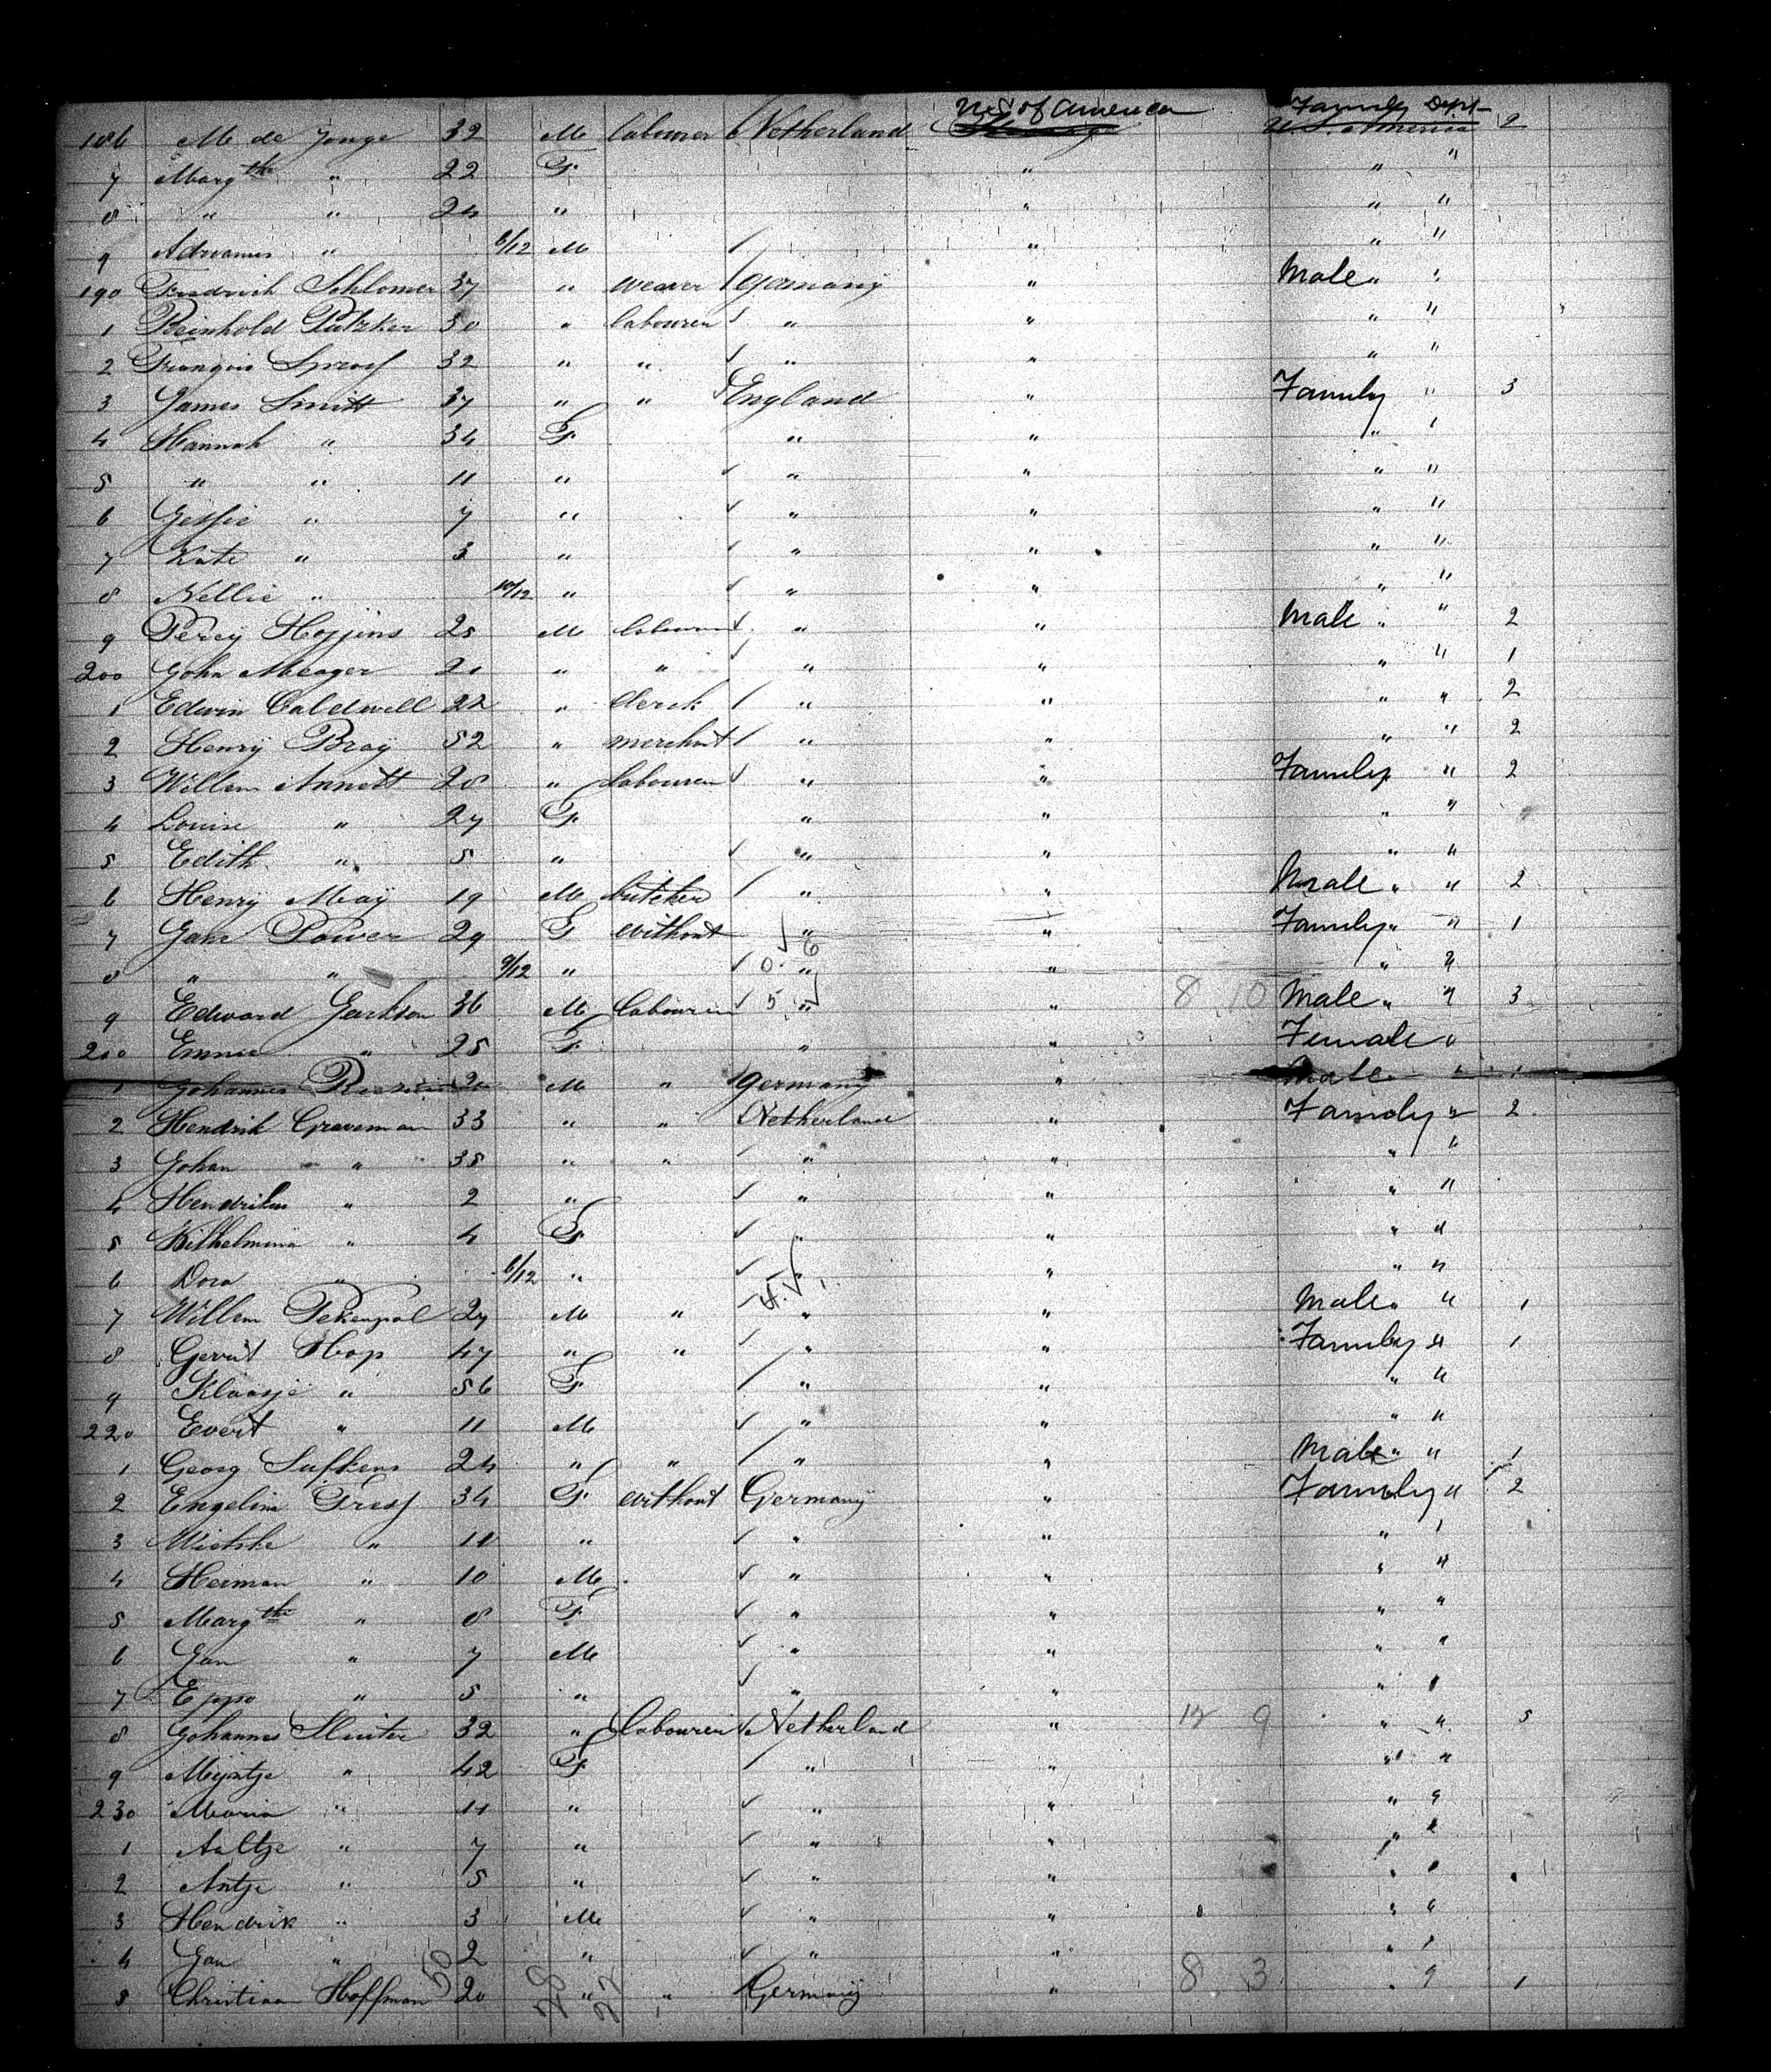 U.S. of America Family Dept
186 M de Jonge 32 M labourer Netherland U.S. America 2
7 Margthe " 22 F " " "
8 " " 24 " " " "
9 Adrianus " 6/12 M " " "
190 Fredrich Schlomer 37 " weaver Germany " Male " "
1 Reinhold Putzker 30 " labourer " " " "
2 François 32 " " " " " "
3 James Smitt 37 " " England " Family " 3
4 Hannah " 34 F " " " "
5 " " 11 " " " " "
6 Jessie " 7 " " " " "
7 Kate " 3 " " " " "
8 Nellie " 10/12 " " " " "
9 Percy Hoggins 25 M labourer " " Male " " 2
200 John Meager 20 " " " " " " 1
1 Edwin Caldwell 22 " clerck " " " " 2
2 Henry Bray 52 " merchant " " " " 2
3 Willem Annett 28 " labourer " " Family " 2
4 Louise " 27 F " " " "
5 Edith " 5 " " " " "
6 Henry May 19 M butcher " " Male " " 2
7 Jane Power 29 F without " " Family " " 1
8 " " 9/12 " " " " "
9 Edward Jackson 36 M labourer " " 8 10 Male " " 3
210 Emma " 25 F " " Female "
1 Johannes 20 M " Germany " Male " " 1
2 Hendrik Graveman 33 " " Netherland " Family " 2
3 Johan " 35 " " " " " "
4 Hendrikus " 2 " " " " "
5 Wilhelmina " 4 F " " " "
6 Dora " 6/12 " " " " "
7 Willem 27 M " " " Male " " 1
8 Gerrit Hop 47 " " " " Family " 1
9 Klaasje " 56 F " " " "
220 Evert " 11 M " " " "
1 Georg 24 " " " " Male " " 1
2 Engelina 34 F without Germany " Family " 2
3 Wietske " 11 " " " " "
4 Herman " 10 M " " " "
5 Margthe " 8 F " " " "
6 Jan " 7 M " " " "
7 Eppo " 5 " " " " "
8 Johannes Sluiter 32 " labourer Netherland " 12 9 " " 5
9 Mijntje " 42 F " " " "
230 Maria " 11 " " " " "
1 Aaltje " 7 " " " " "
2 Antje " 5 " " " " "
3 Hendrik " 3 M " " " "
4 Jan " 2 " " " " "
5 Christian Hoffman 20 " " Germany " 8 3 " " 1
50 28 22